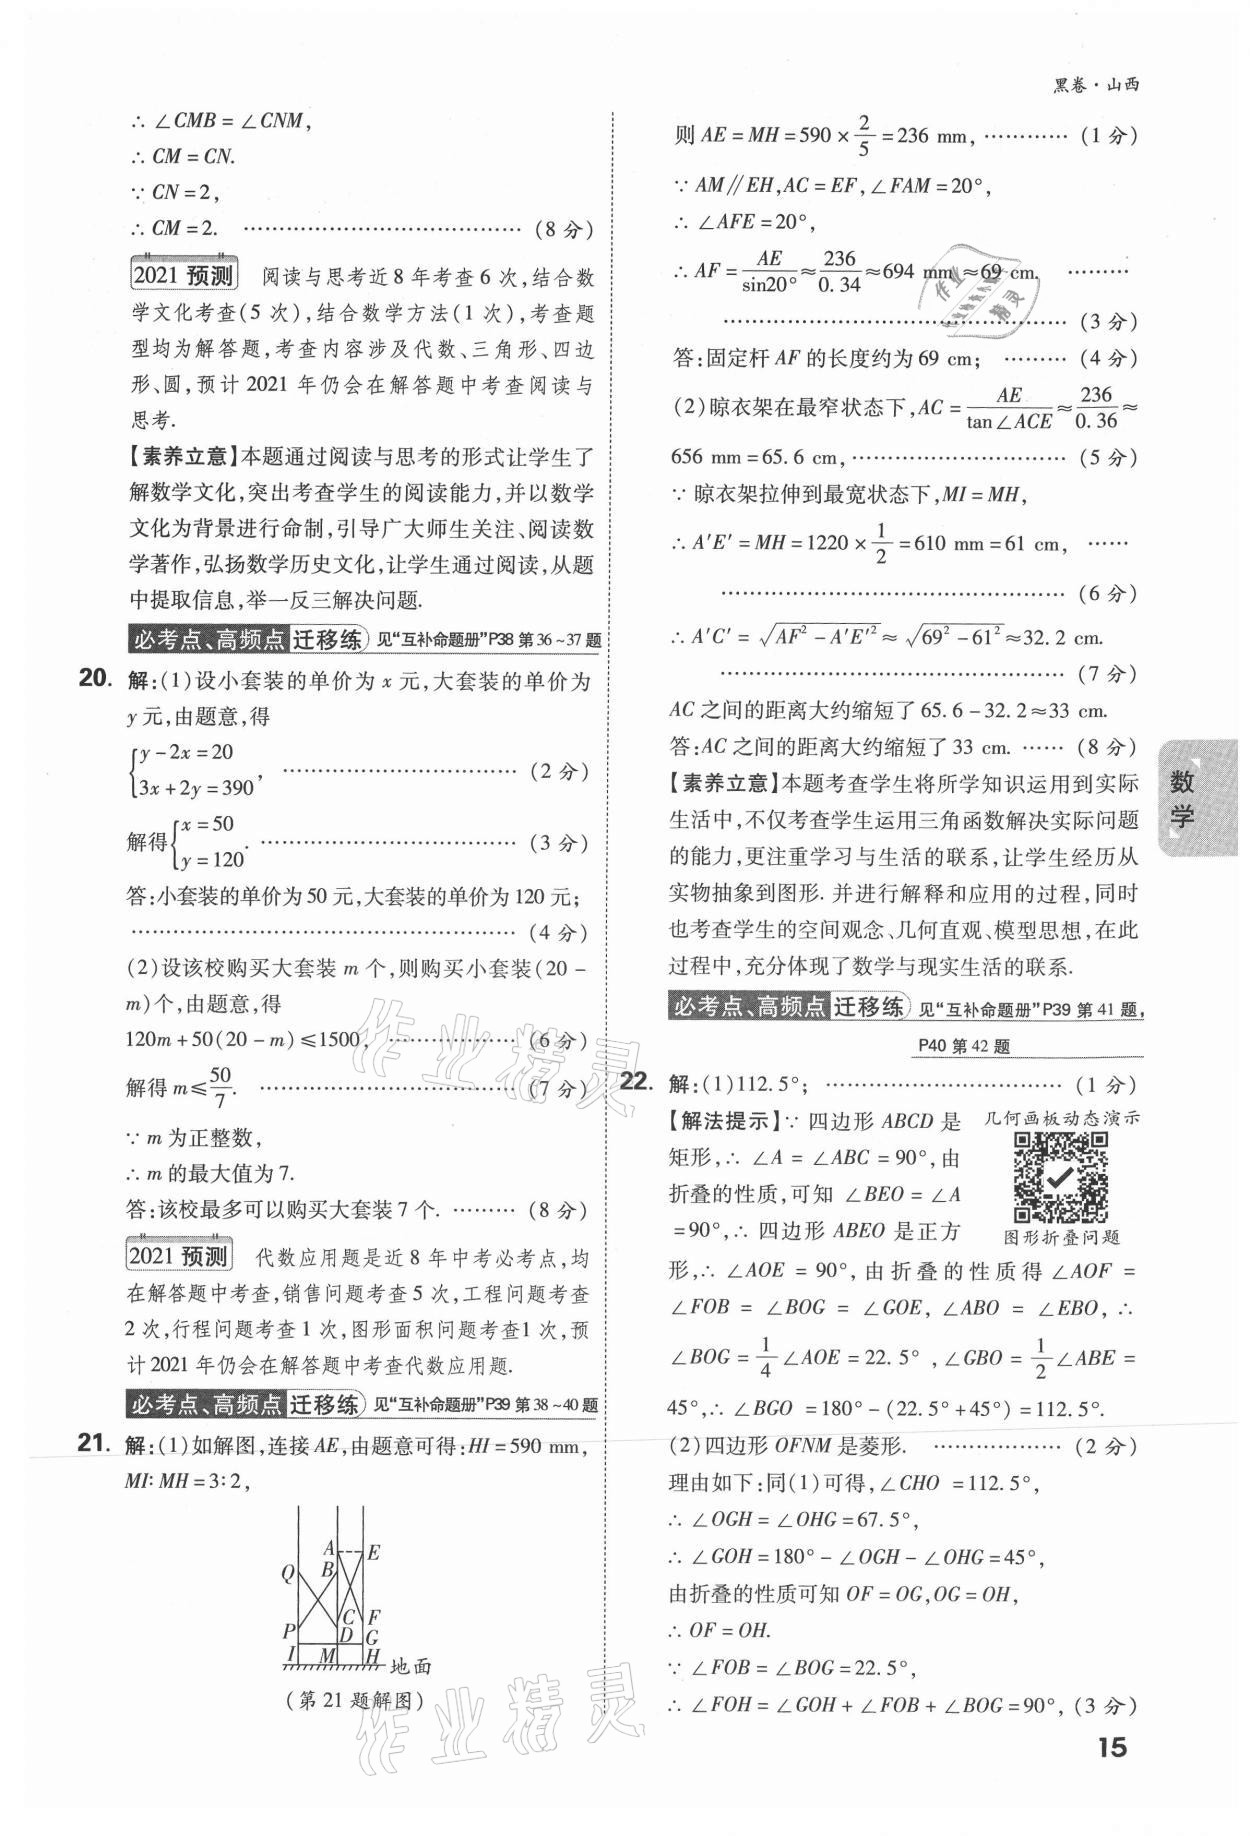 黑卷·山西
∴ ∠CMB = ∠CNM,
∴ CM = CN.
∵ CN = 2,
∴ CM = 2. ………………………… (8 分)
2021 预测 阅读与思考近 8 年考查 6 次,结合数
学文化考查(5 次),结合数学方法(1 次),考查题
型均为解答题,考查内容涉及代数、三角形、四边
形、圆,预计 2021 年仍会在解答题中考查阅读与
思考.
【素养立意】本题通过阅读与思考的形式让学生了
解数学文化,突出考查学生的阅读能力,并以数学
文化为背景进行命制,引导广大师生关注、阅读数
学著作,弘扬数学历史文化,让学生通过阅读,从题
中提取信息,举一反三解决问题.
必考点、高频点 迁移练 见“互补命题册”P38 第 36~37 题
20. 解:(1)设小套装的单价为 x 元,大套装的单价为
y 元,由题意,得
{y - 2x = 20
3x + 2y = 390, ………………………… (2 分)
解得{x = 50
y = 120. ………………………… (3 分)
答:小套装的单价为 50 元,大套装的单价为 120 元;
………………………………………… (4 分)
(2)设该校购买大套装 m 个,则购买小套装(20 -
m)个,由题意,得
120m + 50(20 - m) ≤ 1500, ……………… (6 分)
解得 m ≤ 50/7. ………………………… (7 分)
∵ m 为正整数,
∴ m 的最大值为 7.
答:该校最多可以购买大套装 7 个. ……… (8 分)
2021 预测 代数应用题是近 8 年中考必考点,均
在解答题中考查,销售问题考查 5 次,工程问题考查
2 次,行程问题考查 1 次,图形面积问题考查1 次,预
计 2021 年仍会在解答题中考查代数应用题.
必考点、高频点 迁移练 见“互补命题册”P39 第 38~40 题
21. 解:(1)如解图,连接 AE,由题意可得:HI = 590 mm,
MI∶MH = 3∶2,
A E
Q B
P C F
D G
I M H 地面
(第 21 题解图)
则 AE = MH = 590 × 2/5 = 236 mm, ………… (1 分)
∵ AM∥EH, AC = EF, ∠FAM = 20°,
∴ ∠AFE = 20°,
∴ AF = AE/sin20° ≈ 236/0.34 ≈ 694 mm ≈ 69 cm. ………
………………………………………… (3 分)
答:固定杆 AF 的长度约为 69 cm; ……… (4 分)
(2)晾衣架在最窄状态下, AC = AE/tan∠ACE ≈ 236/0.36 ≈
656 mm = 65.6 cm, ………………………… (5 分)
∵ 晾衣架拉伸到最宽状态下, MI = MH,
∴ A′E′ = MH = 1220 × 1/2 = 610 mm = 61 cm, ……
………………………………………… (6 分)
∴ A′C′ = √(AF² - A′E′²) ≈ √(69² - 61²) ≈ 32.2 cm.
………………………………………… (7 分)
AC 之间的距离大约缩短了 65.6 - 32.2 ≈ 33 cm.
答:AC 之间的距离大约缩短了 33 cm. …… (8 分)
【素养立意】本题考查学生将所学知识运用到实际
生活中,不仅考查学生运用三角函数解决实际问题
的能力,更注重学习与生活的联系,让学生经历从
实物抽象到图形. 并进行解释和应用的过程,同时
也考查学生的空间观念、几何直观、模型思想,在此
过程中,充分体现了数学与现实生活的联系.
必考点、高频点 迁移练 见“互补命题册”P39 第 41 题,
P40 第 42 题
22. 解:(1)112.5°; ………………………… (1 分)
【解法提示】∵ 四边形 ABCD 是
矩形,∴ ∠A = ∠ABC = 90°,由
折叠的性质,可知 ∠BEO = ∠A
= 90°,∴ 四边形 ABEO 是正方
几何画板动态演示
图形折叠问题
形,∴ ∠AOE = 90°, 由折叠的性质得 ∠AOF =
∠FOB = ∠BOG = ∠GOE, ∠ABO = ∠EBO, ∴
∠BOG = 1/4 ∠AOE = 22.5°, ∠GBO = 1/2 ∠ABE =
45°,∴ ∠BGO = 180° - (22.5° + 45°) = 112.5°.
(2)四边形 OFNM 是菱形. ……………… (2 分)
理由如下:同(1)可得, ∠CHO = 112.5°,
∴ ∠OGH = ∠OHG = 67.5°,
∴ ∠GOH = 180° - ∠OGH - ∠OHG = 45°,
由折叠的性质可知 OF = OG, OG = OH,
∴ OF = OH.
∵ ∠FOB = ∠BOG = 22.5°,
∴ ∠FOH = ∠GOH + ∠FOB + ∠BOG = 90°, (3 分)
数学
15
作业精灵
作业精灵